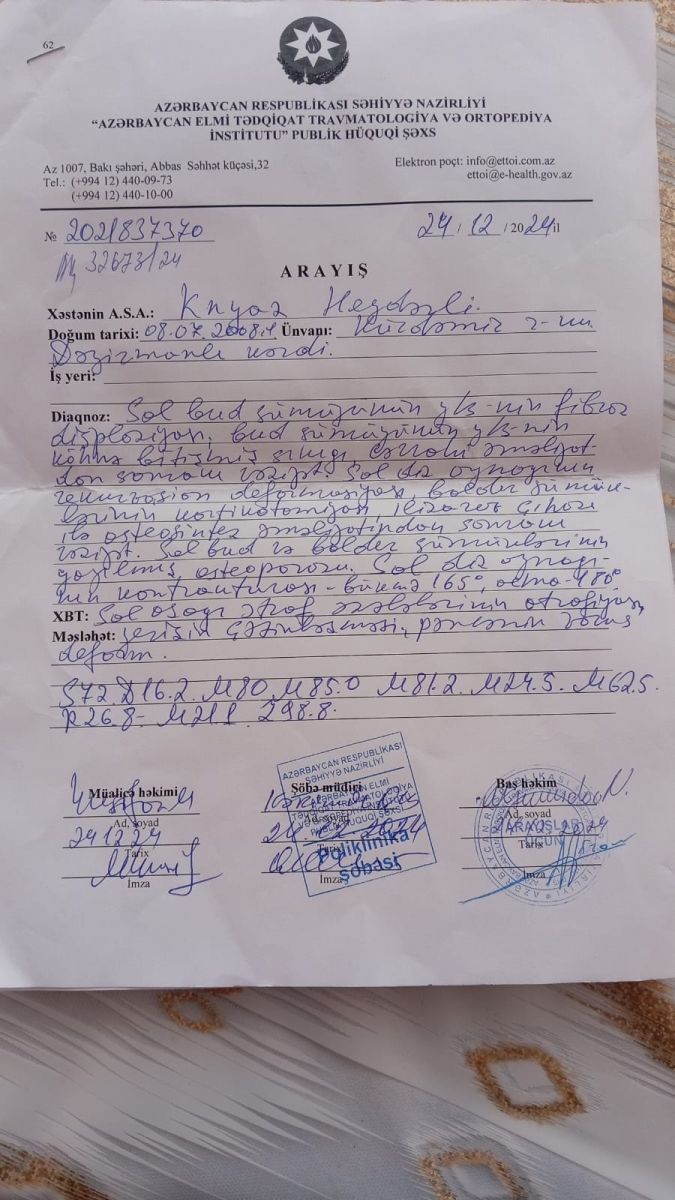 62
AZƏRBAYCAN RESPUBLİKASI SƏHİYYƏ NAZİRLİYİ
“AZƏRBAYCAN ELMİ TƏDQİQAT TRAVMATOLOGİYA VƏ ORTOPEDİYA
İNSTİTUTU” PUBLİK HÜQUQİ ŞƏXS
Az 1007, Bakı şəhəri, Abbas Səhhət küçəsi,32
Elektron poçt: info@ettoi.com.az
Tel.: (+994 12) 440-09-73
ettoi@e-health.gov.az
(+994 12) 440-10-00
№ 2021837370
24 / 12 / 2024 il
32673/24
ARAYIŞ
Xəstənin A.S.A.: Knyaz Heydərli.
Doğum tarixi: 08.07.2008 Ünvanı: Kürdəmir r-nu
Dəyirmanlı kəndi.
İş yeri:
Diaqnoz: Sol bud sümüyünün y/s-nin fibroz
displaziyası, bud sümüyünün y/s-nin
köhnə bitişmiş sınığı, cərrahi əməliyyat
dan sonrakı vəziyyət. Sol diz oynağının
deformasiyası, baldır sümük-
lərinin İlizarov cihazı
ilə osteosintez əməliyyatından sonrakı
vəziyyət. Sol bud və baldır sümüklərinin
yayılmış osteoporozu. Sol diz oynağı-
nın kontrakturası - bükmə 165°, açma - 180°
XBT: Sol aşağı ətraf əzələlərinin atrofiyası,
Məsləhət: yerişin çətinləşməsi, pəncənin
deform.
S72. D16.2. M80. M85.0 M81.2. M24.5. M62.5.
R26.8- M21.1 Z98.8.
Müalicə həkimi
Şöbə müdiri
Baş həkim
Ad, soyad
Ad, soyad
Ad, soyad
24 12 24
Tarix
Tarix
Tarix
İmza
İmza
İmza
AZƏRBAYCAN RESPUBLİKASI
SƏHİYYƏ NAZİRLİYİ
AZƏRBAYCAN ELMİ
TƏDQİQAT TRAVMATOLOGİYA
VƏ ORTOPEDİYA İNSTİTUTU
PUBLİK HÜQUQİ ŞƏXSİ
Poliklinika
şöbəsi
ARAYIŞLAR
ÜÇÜN